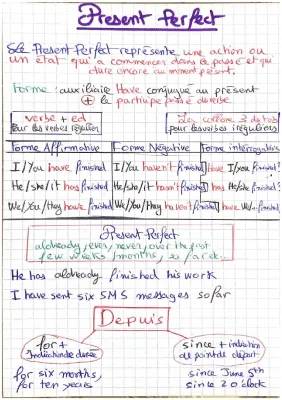 Present Perfect
Le Present Perfect représente une action ou
un état qui a commencé dans le passé et qui
dure encore au moment présent.
Forme : auxiliaire Have conjugué au présent
+ le participe passé du verbe
verbe + ed
Pour les verbes réguliers
colonne 3
pour les verbes irréguliers
Forme Affirmative Forme Négative Forme interrogative
I/You have finished I/You haven't finished Have I/you finished?
He/she/it has finished He/she/it hasn't finished has He/she finished?
We/You/they have finished We/You/they haven't finished have We finished
Present Perfect
alaheady, ever, never, over the first
few weeks/months, so far..
He has alaheady finished his work
I have sent six SMS messages so far
Depuis
for + since + indication
de point de départ
for six months, since June 5th
for ten years since 2 o'clock